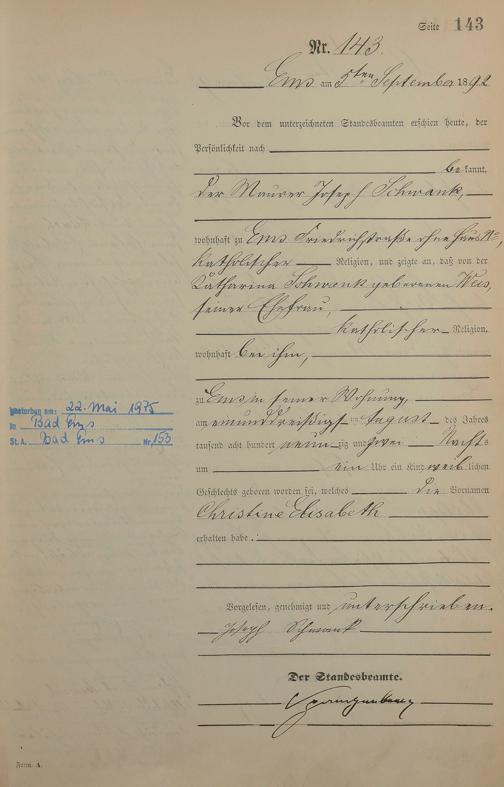 Seite 143
Nr. 143.
Ems am 5ten September 1892
Vor dem unterzeichneten Standesbeamten erschien heute, der
Persönlichkeit nach
bekannt,
der Maurer Joseph Schwank,
wohnhaft zu Ems Friedrichstraße ohne Haus No,
katholischer Religion, und zeigte an, daß von der
Katharina Schwank geborenen Weis,
seiner Ehefrau,
katholischer Religion,
wohnhaft bei ihm,
zu Ems in seiner Wohnung,
am einunddreißigsten August des Jahres
tausend acht hundert neunzig und zwei Nachts
um ein Uhr ein Kind weiblichen
Geschlechts geboren worden sei, welches die Vornamen
Christine Elisabeth
erhalten habe.
Vorgelesen, genehmigt und unterschrieben.
Joseph Schwank
Der Standesbeamte.
Gestorben am: 22. Mai 1975
in Bad Ems
St. A. Bad Ems Nr. 153
Form. A.